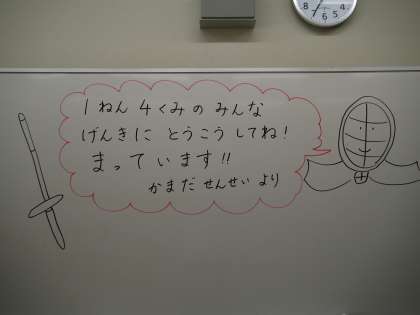 1ねん 4くみの みんな
げんきに とうこう してね!
まって います!!
かまだ せんせい より
8 7 6 5 4